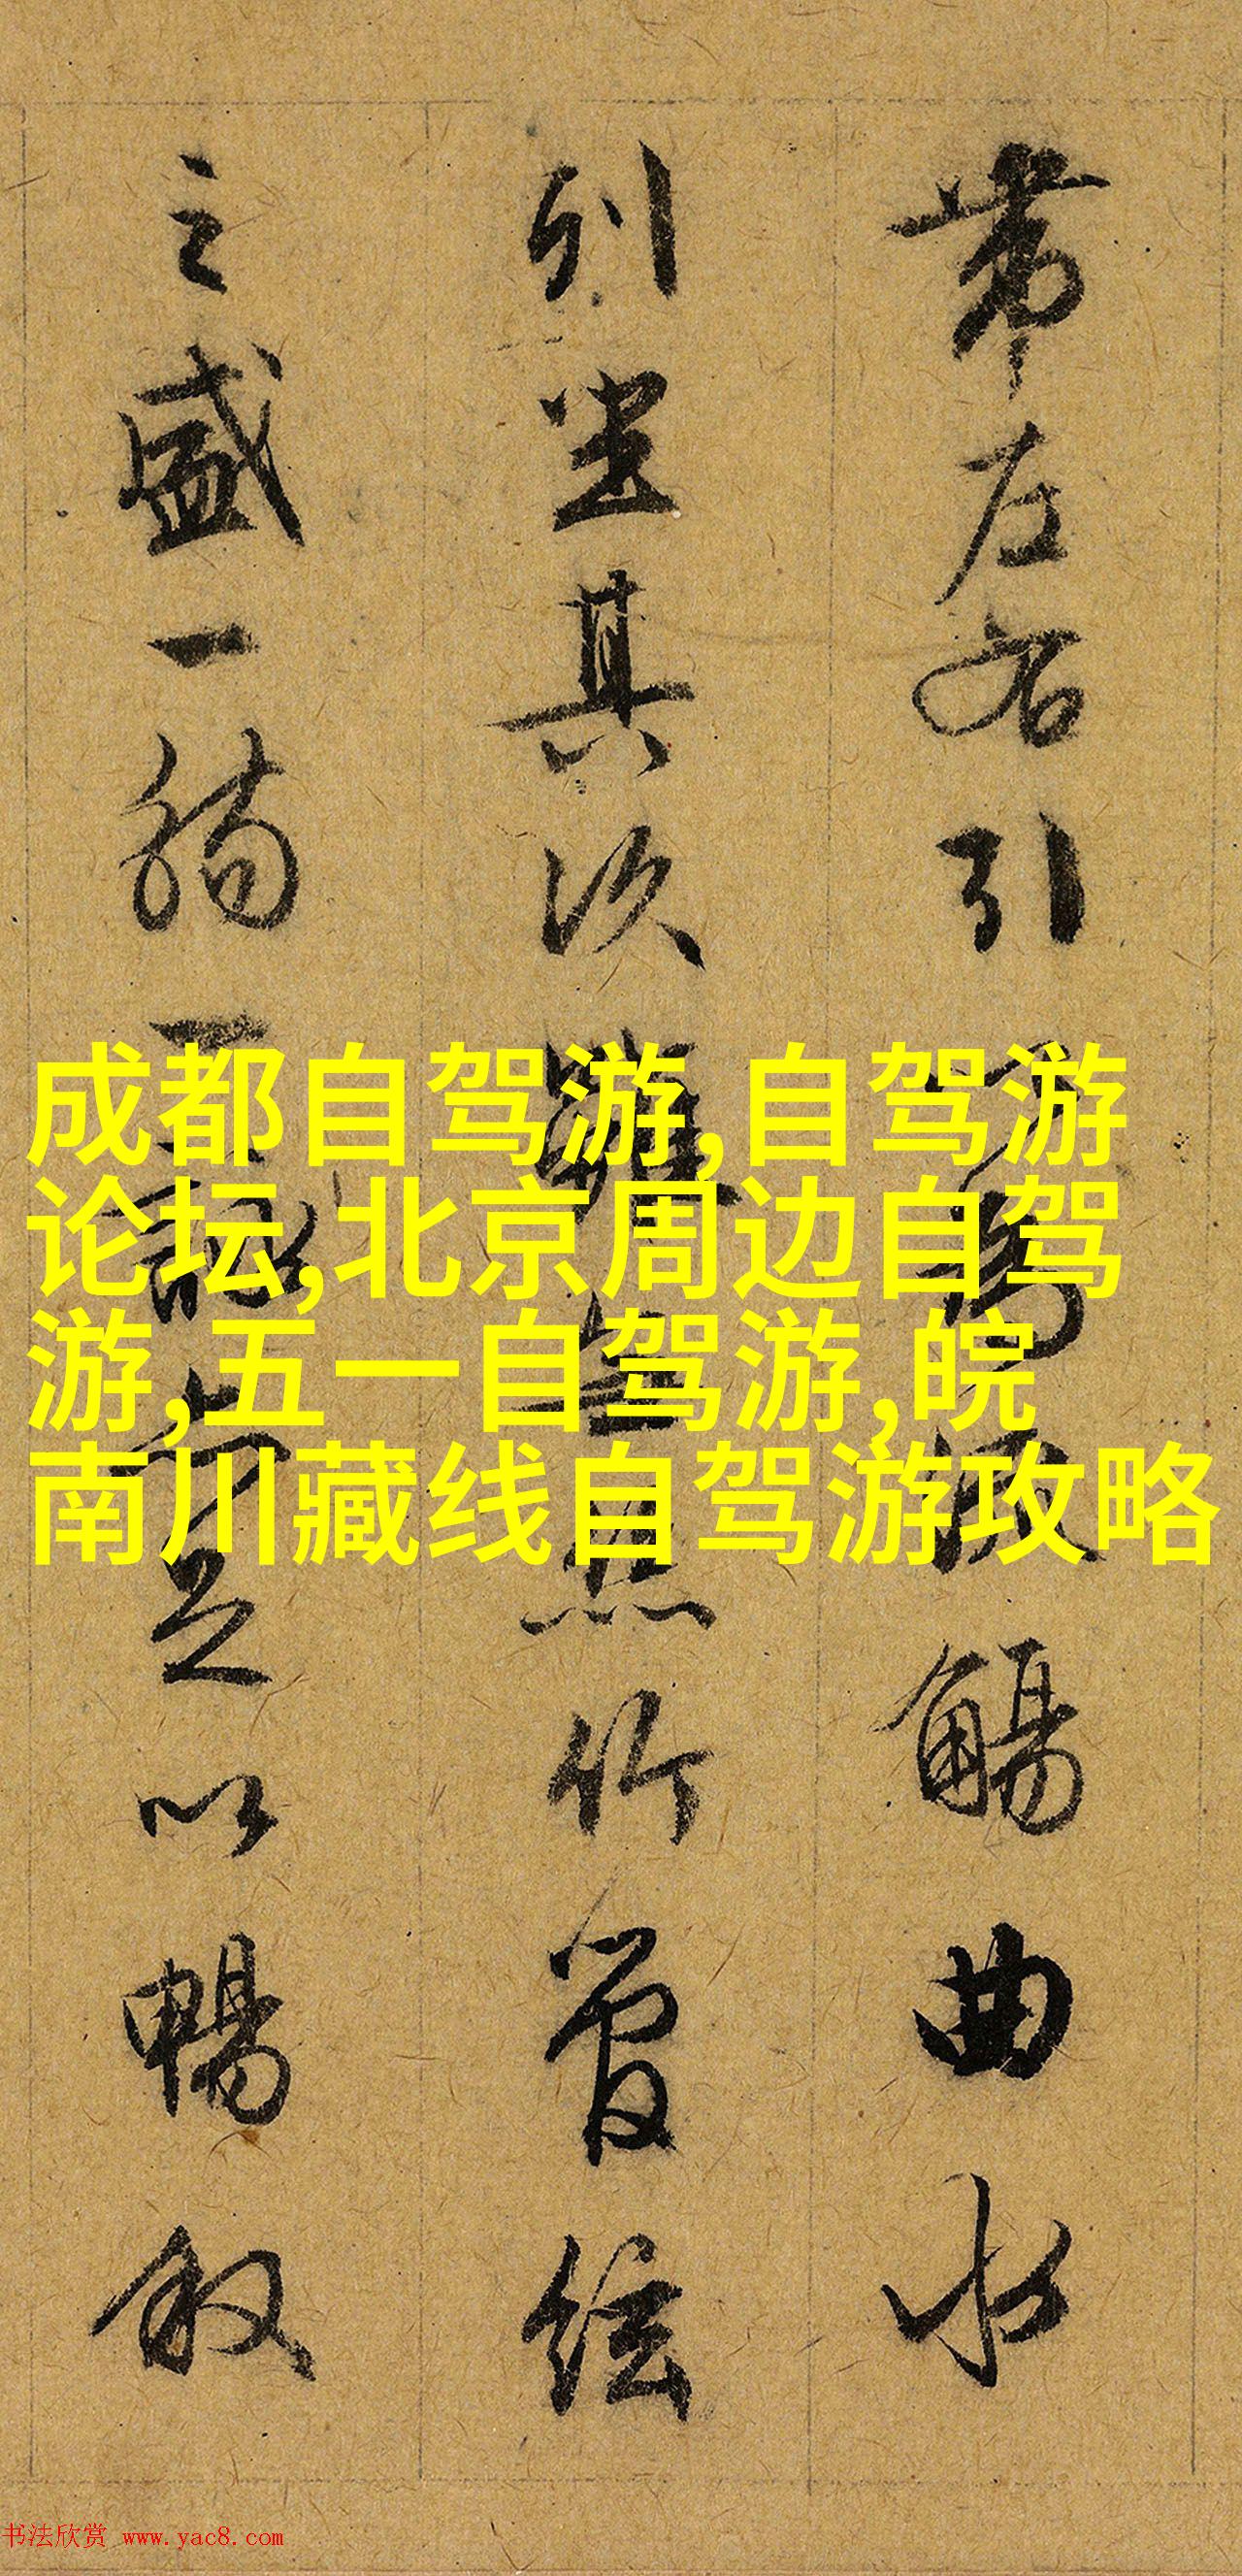 帶左右引以為流觴曲水
列坐其次雖無絲竹管絃
之盛一觴一詠亦足以暢敘
成都自驾游,自驾游
论坛,北京周边自驾
游,五一自驾游,皖
南川藏线自驾游攻略
书法欣赏 www.yac8.com